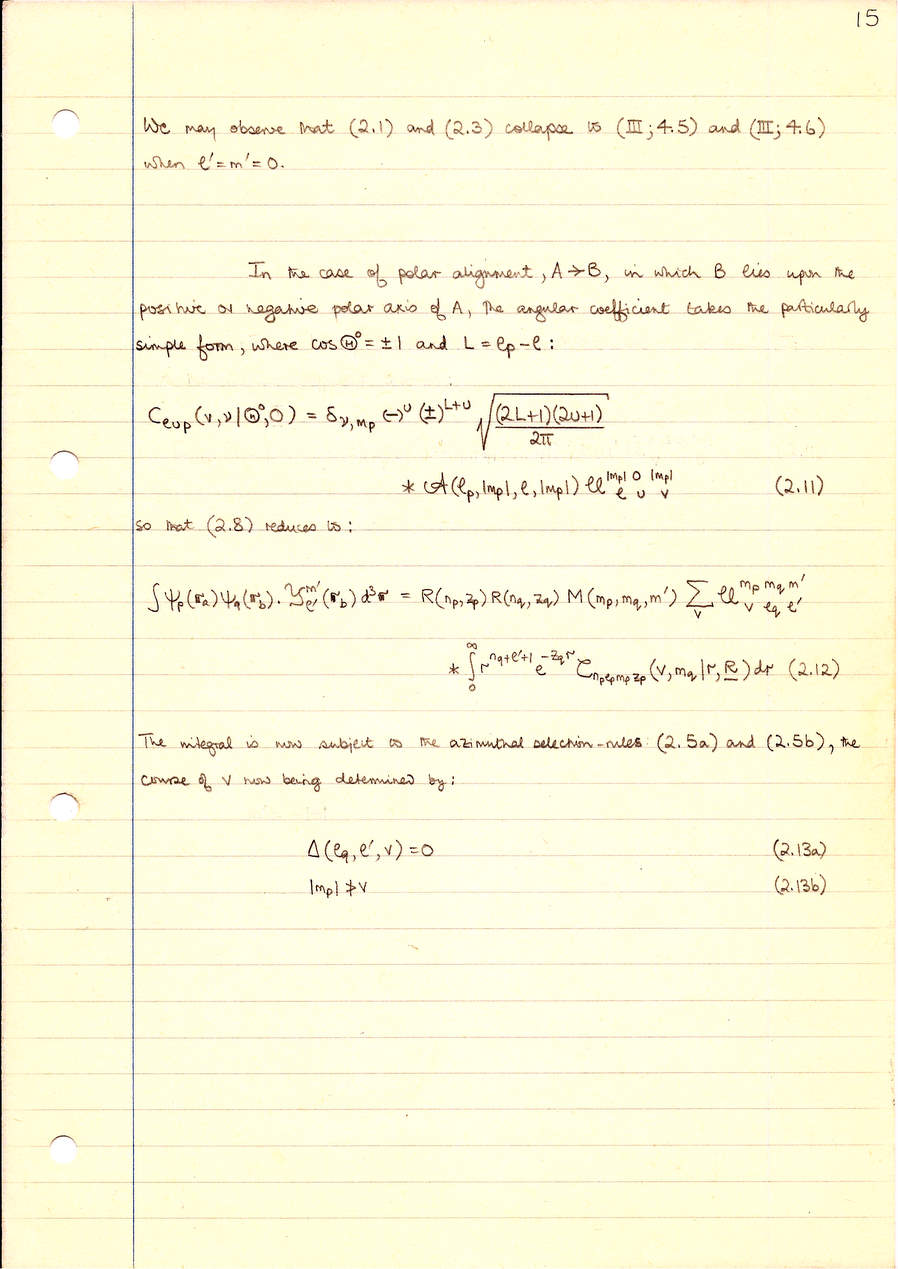 15
We may observe that (2.1) and (2.3) collapse to (III; 4.5) and (III; 4.6)
when ℓ' = m' = 0.
In the case of polar alignment, A → B, in which B lies upon the
positive or negative polar axis of A, the angular coefficient takes the particularly
simple form, where cos Θ° = ± 1 and L = ℓp − ℓ :
C_{ℓUp}(v, ν | Θ°, 0) = δ_{ν, mp} (−)^U (±)^{L+U} √((2L+1)(2U+1) / 2π)
* A(ℓp, |mp|, ℓ, |mp|) U^{|mp| 0 |mp|}_{ℓ U v} (2.11)
so that (2.8) reduces to :
∫ψp(ra) ψq(rb). Y^{m'}_{ℓ'}(rb) d³r = R(np, zp) R(nq, zq) M(mp, mq, m') Σ_v U^{mp mq m'}_{v ℓq ℓ'}
* ∫_0^∞ r^{nq+ℓ'+1} e^{−zq r} C_{np ℓp mp zp}(v, mq | r, R) dr (2.12)
The integral is now subject to the azimuthal selection-rules (2.5a) and (2.5b), the
course of v now being determined by :
Δ(ℓq, ℓ', v) = 0 (2.13a)
|mp| ≯ v (2.13b)